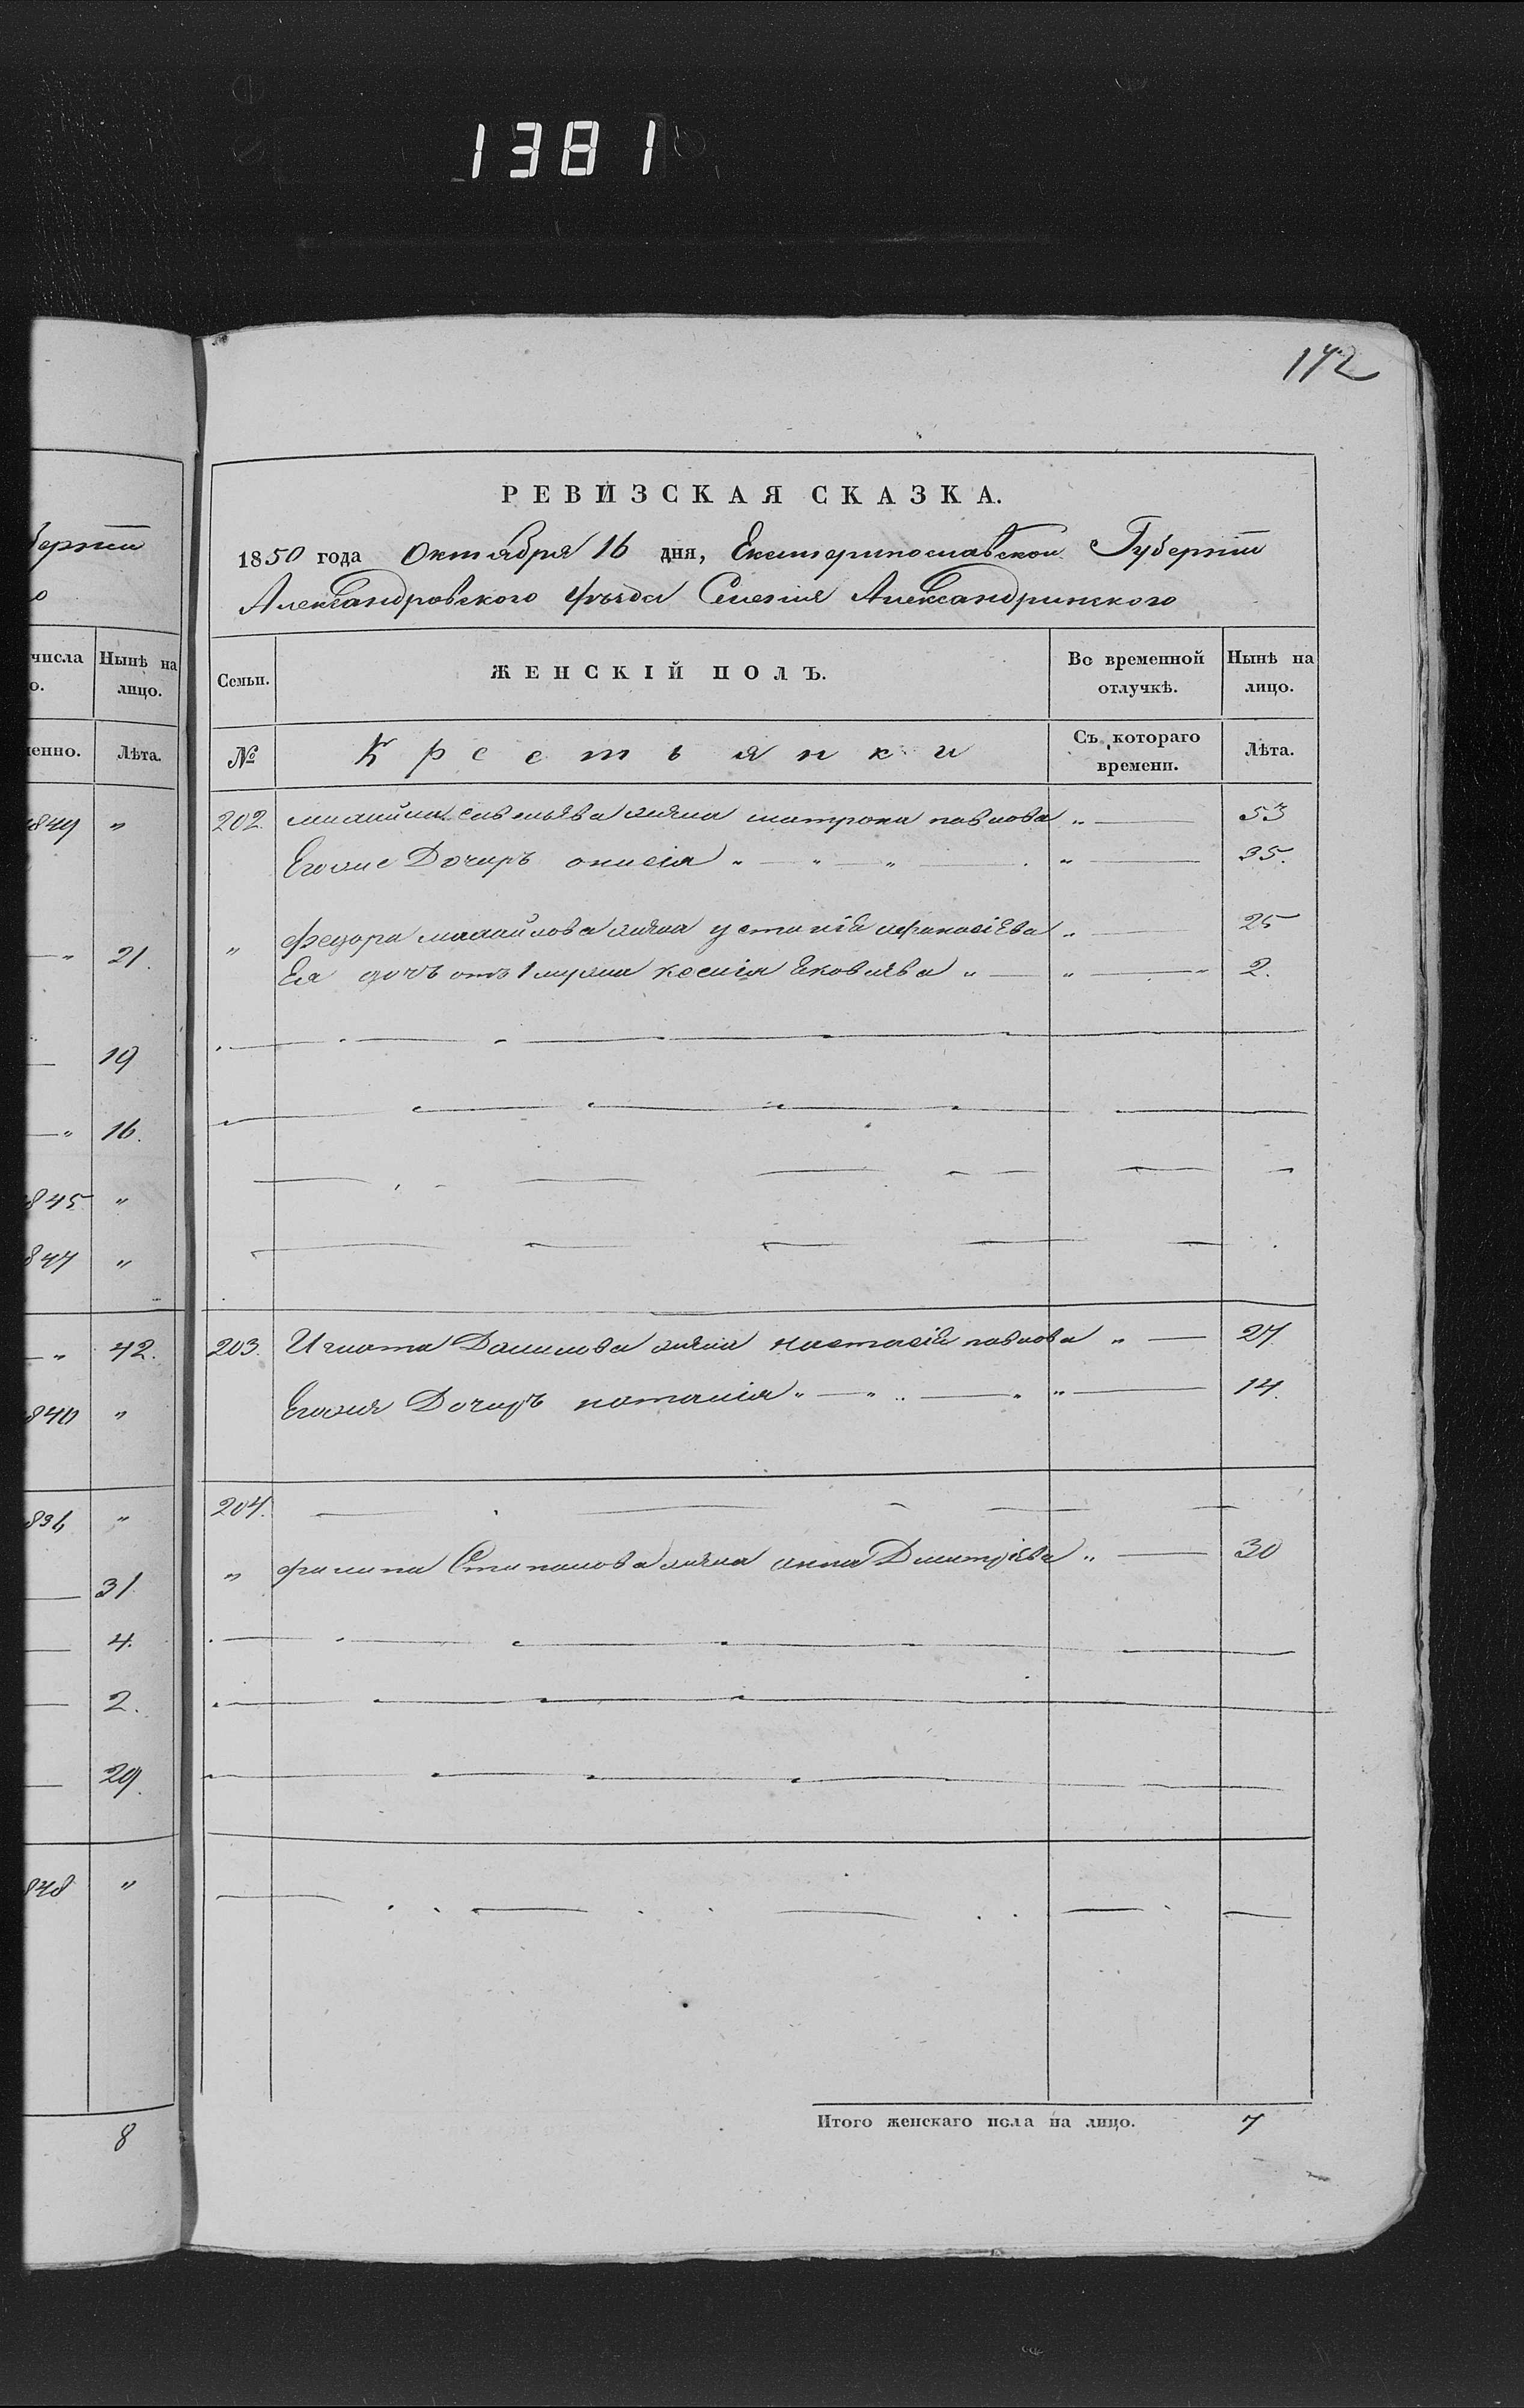 1381
172
РЕВИЗСКАЯ СКАЗКА.
1850 года Октября 16 дня, Екатеринославской Губерніи
Александровского уѣзда Селенія Александринского
Семьи. ЖЕНСКІЙ ПОЛЪ. Во временной отлучкѣ. Нынѣ на лицо.
№ Крестьянки Съ котораго времени. Лѣта.
202. михайла савельева жена матрона павлова " 53
Егоже Дочеръ анисія " " " " 35.
" федора михайлова жена устинія афанасіева " 25
Ея дочъ отъ 1 мужа ксенія Яковлева " " " 2.
203. Игната Данилова жена настасія павлова " 27
Егожя Дочеръ наталія " " " " 14.
204.
" филипа Степанова жена анна Дмитріева " 30
Итого женскаго пола на лицо. 7
берніи
о
числа Нынѣ на
о. лицо.
менно. Лѣта.
849 "
" 21.
19
" 16.
845 "
847 "
" 42.
840 "
836 "
31
4.
2.
29.
848 "
8